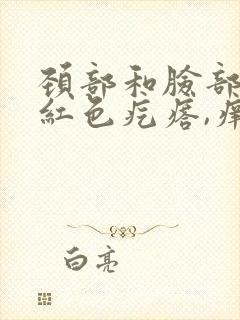 頸部和臉部
紅色疙瘩,癢
白亮